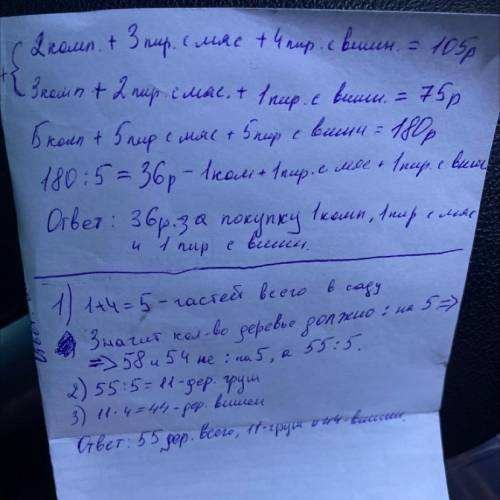 2 комп. + 3 пир. с мяс + 4 пир. с вишн. = 105р
+
3 комп + 2 пир. с мяс. + 1 пир. с вишн. = 75р
5 комп + 5 пир с мяс + 5 пир с вишн = 180р
180 : 5 = 36р - 1 ком + 1 пир. с мяс + 1 пир. с виш
Ответ: 36р. за покупку 1 комп, 1 пир с мяс
и 1 пир с вишн.
1) 1+4=5 - частей всего в саду
Значит кол-во деревье должно : на 5 =>
=> 58 и 54 не : на 5, а 55 : 5.
2) 55 : 5 = 11 - дер. груш
3) 11 · 4 = 44 - дер. вишен
Ответ: 55 дер. всего, 11 - груш и 44 - вишни.